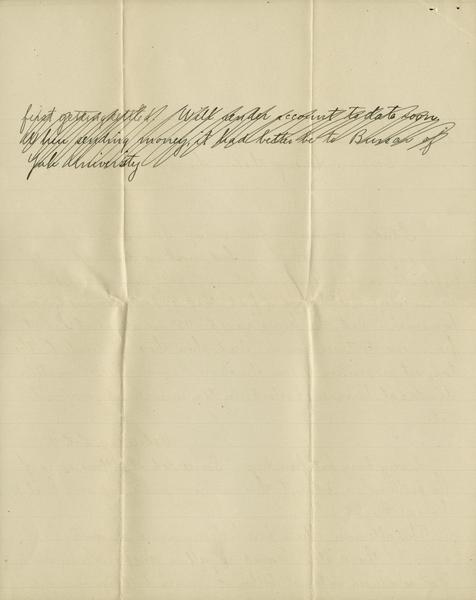 first getting settled. Will render account to date soon.
When sending money, it had better be to Bursar of
Yale University